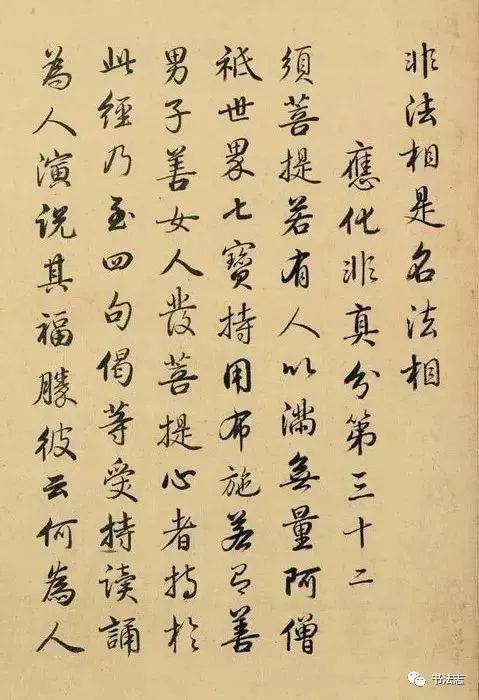 非法相是名法相
應化非真分第三十二
須菩提若有人以滿無量阿僧
祇世界七寶持用布施若有善
男子善女人發菩提心者持於
此經乃至四句偈等受持读誦
為人演说其福勝彼云何為人
书法志